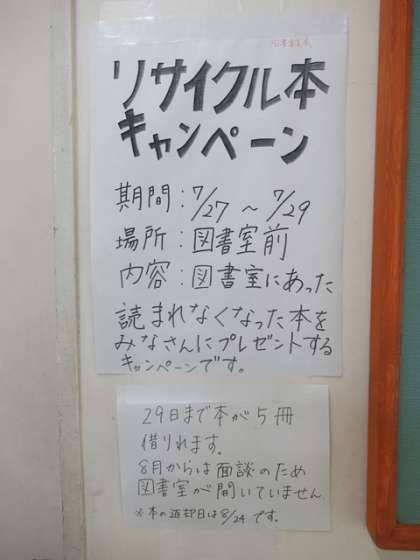 リサイクル本
キャンペーン
期間:7/27~7/29
場所:図書室前
内容:図書室にあった
読まれなくなった本を
みなさんにプレゼントする
キャンペーンです。
29日まで本が5冊
借りれます。
8月からは面談のため
図書室が開いていません
※本の返却日は8/24です。